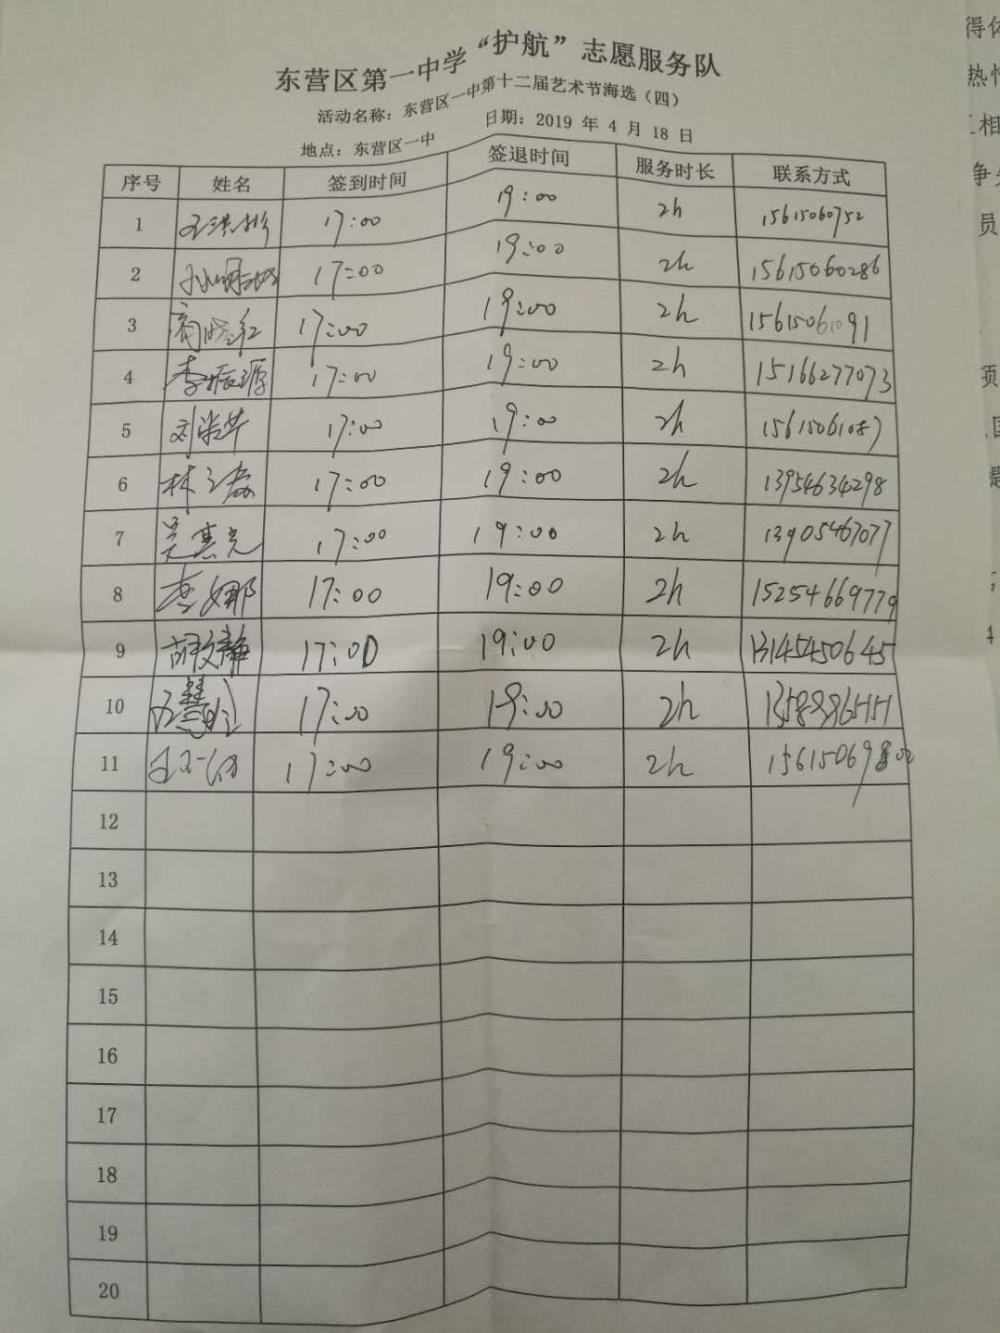 东营区第一中学“护航”志愿服务队
活动名称：东营区一中第十二届艺术节海选（四）
地点：东营区一中 日期：2019 年 4 月 18 日
序号 姓名 签到时间 签退时间 服务时长 联系方式
1 17:00 19:00 2h 15615060752
2 17:00 19:00 2h 15615060286
3 17:00 19:00 2h 15615061091
4 李振源 17:00 19:00 2h 15166277073
5 刘荣华 17:00 19:00 2h 15615061087
6 17:00 19:00 2h 13954634298
7 吴惠光 17:00 19:00 2h 13905467077
8 李娜 17:00 19:00 2h 15254669779
9 胡文静 17:00 19:00 2h 13145450645
10 17:00 19:00 2h
11 17:00 19:00 2h
12
13
14
15
16
17
18
19
20